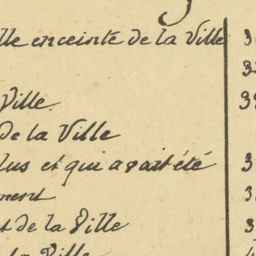 lle enceinte de la Ville 3
3
Ville. 39
de la Ville
lus et qui avait été 3
ment 3
t de la Ville 3
la Ville